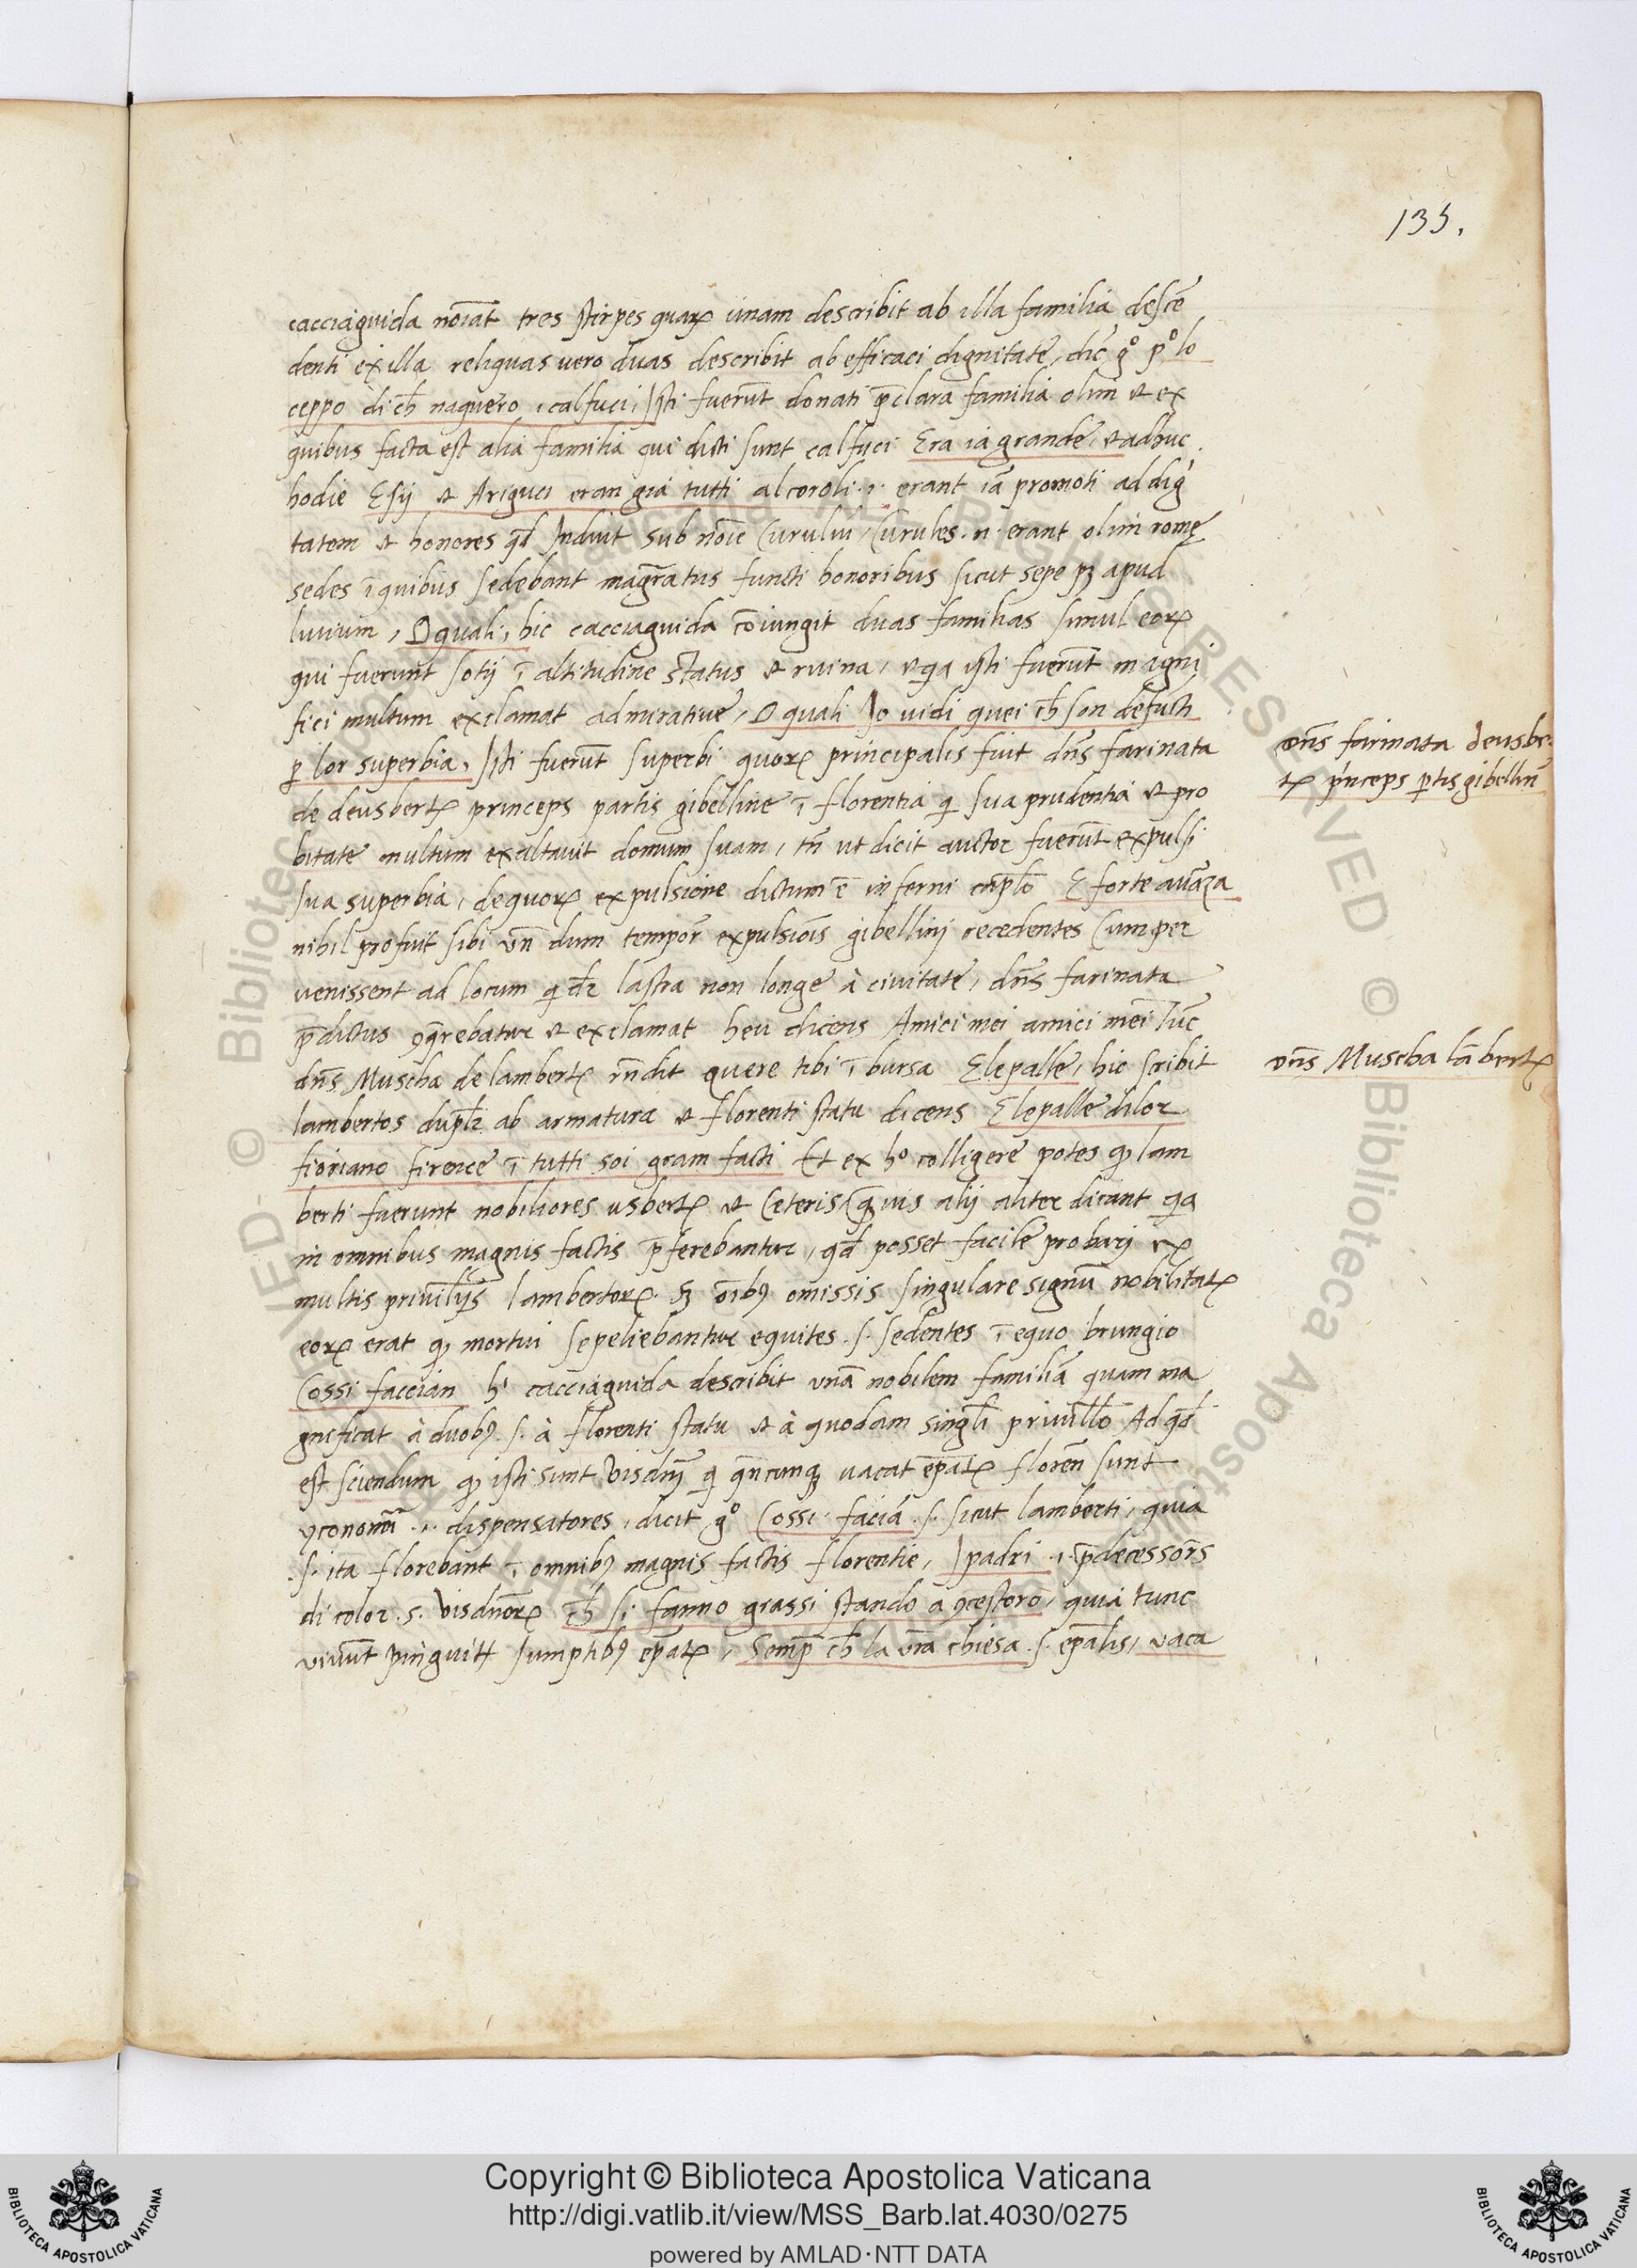 135.
cacciaguida noīat tres stirpes quarꝝ unam describit ab illa familia descē
denti ex illa reliquas vero duas describit ab efficaci dignitate, dic̄ g° p° lo
ceppo di ch̄ naquero, calfuci, Isti fuerūt donati p̄clara familia olim et ex
quibus facta est alia familia qui dicti sunt calfuci Era ia grande, et adhuc
hodie Esij et Ariguci eran gia tutti al coroli .i. erant iā promoti ad dig
tatem et honores qd̄ Induit sub noīe Curuliu, Curules .n. erant olim romę
sedes ī quibus sedebant magr̄atus functi honoribus sicut sepe pꝫ apud
liuium, O quali, hic cacciaguida cōiungit duas familias simul eorꝝ
qui fuerunt sotij ī altitudine status et ruina, et qa isti fuerūt magni
fici multum exclamat admirative, O quali Io uidi quei ch̄ son defucti
ꝑ lor superbia, Isti fuerūt superbi quorꝝ principalis fuit dn̄s farinata
de deusbertꝝ princeps partis gibelline ī florentia q sua prudentia et pro
bitate multum exaltauit domum suam, tn̄ ut dicit auctor fuerūt expulsi
sua superbia, de quorꝝ expulsione dictum ē inferni cap̄lo E forte auāza
nihil profuit sibi un̄ dum tempor̄ expulsiōis gibellinj recedentes Cum per
venissent ad locum q dr̄ lastra non longe à civitate, dn̄s farinata
p̄dictus ꝯq̄rebatur et exclamat heu dicens Amici mei amici mei Tūc
dn̄s Muscha de lambertꝝ rn̄dit quere tibi ī bursa E le palle, hic scribit
lambertos dupl̄r ab armatura et florenti statu dicens E le palle dilor
fioriano firence ī tutti soi gram facti Et ex h° colligere potes qꝫ lam
berti fuerunt nobiliores usbertꝝ et Ceteris qꝫuis alij aliter dicant qa
in omnibus magnis factis p̄ferebantur, qd̄ posset facile probarj ex
multis privil̄ijs lambertorꝝ. sꝫ oībꝰ omissis singulare signū nobilitatꝝ
eorꝝ erat qꝫ mortui sepeliebantur equites .s. sedentes ī equo brungio
Cossi faccian hⁱ cacciaguida describit unā nobilem familiā quam ma
gnificat à duobꝰ .s. à florenti statu et à quodam singl̄i privil̄lo Ad qd̄
est sciendum qꝫ isti sunt Visdn̄j q qn̄cunqꝫ vacat ep̄atꝝ floren̄ sunt
yconomi .i. dispensatores, dicit g° Cossi faciā .s. sicut lamberti, quia
.s. ita florebant ī omnibꝰ magnis factis florentie, I padri .i. p̄decessor̄s
di color .s. visdn̄orꝝ ch̄ si fanno grassi stando a ꝯcestoro, quia tunc
viuūt pinguitꝝ sumptibꝰ ep̄atꝝ, Semp̄ ch̄ la vr̄a chiesa .s. ep̄alis, vaca
dn̄s farinata deusbe
tꝝ princeps ꝑtis gibellin̄
dn̄s Muscha lābertꝝ
Copyright © Biblioteca Apostolica Vaticana
http://digi.vatlib.it/view/MSS_Barb.lat.4030/0275
powered by AMLAD·NTT DATA
BIBLIOTECA APOSTOLICA VATICANA
BIBLIOTECA APOSTOLICA VATICANA